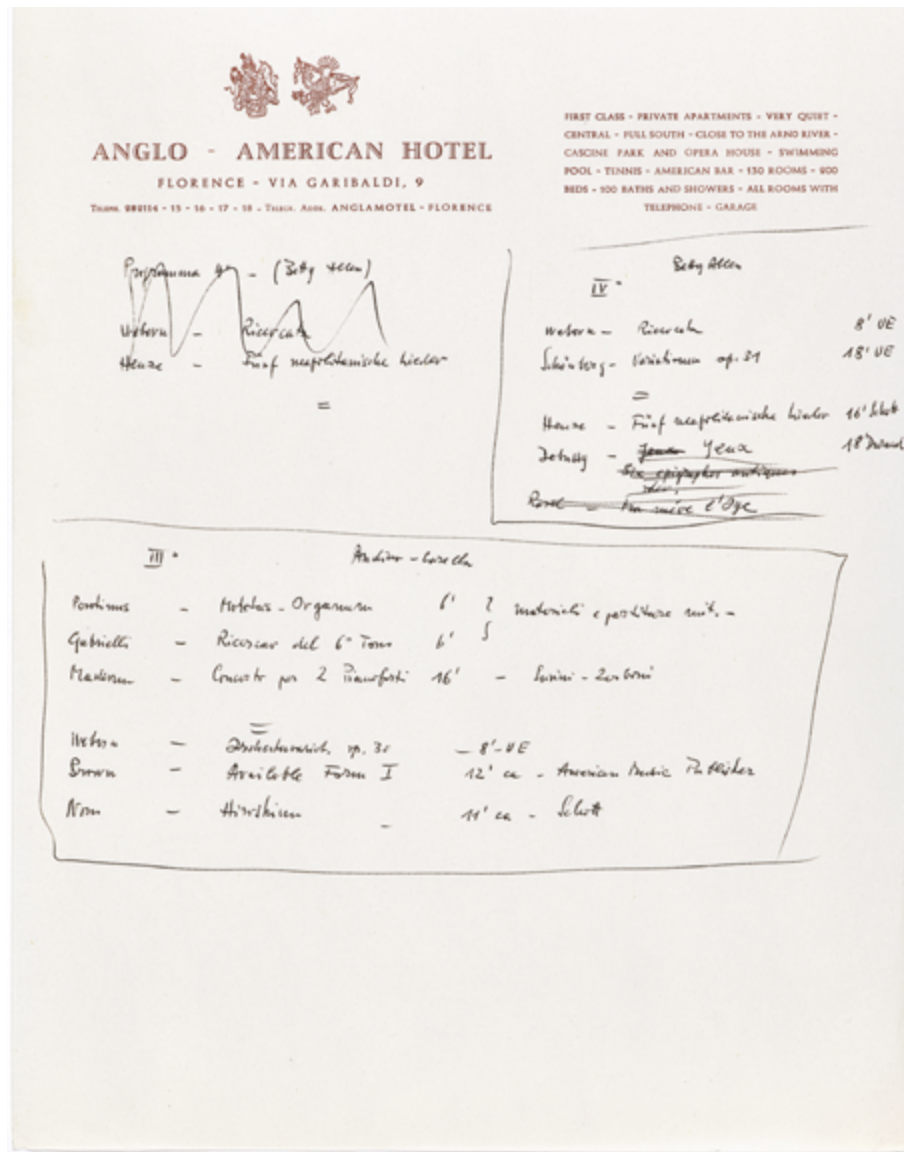 ANGLO - AMERICAN HOTEL
FLORENCE - VIA GARIBALDI, 9
TELEPH. 282114 - 15 - 16 - 17 - 18 - TELEGR. ADDR. ANGLAMOTEL - FLORENCE
FIRST CLASS - PRIVATE APARTMENTS - VERY QUIET -
CENTRAL - FULL SOUTH - CLOSE TO THE ARNO RIVER -
CASCINE PARK AND OPERA HOUSE - SWIMMING
POOL - TENNIS - AMERICAN BAR - 130 ROOMS - 200
BEDS - 100 BATHS AND SHOWERS - ALL ROOMS WITH
TELEPHONE - GARAGE
Programma - (Betty Allen)
Webern - Ricercata
Henze - Fünf neapolitanische Lieder
=
Betty Allen
IV°
Webern - Ricercata 8' UE
Schönberg - Variationen op. 31 18' UE
=
Henze - Fünf neapolitanische Lieder 16' Schott
Debussy - Jeux Jeux 18' Durand
Six epigraphes antiques
Ravel - Ma mère l'Oye
III°
Perotinus - Motetus - Organum 6'
materiali e partiture
Gabrielli - Ricercar del 6° Tono 6'
Maderna - Concerto per 2 Pianoforti 16' - Suvini - Zerboni
=
Webern - op. 30 - 8' - UE
Brown - Available Form I 12' ca - American Music Publisher
Nono - 11' ca - Schott